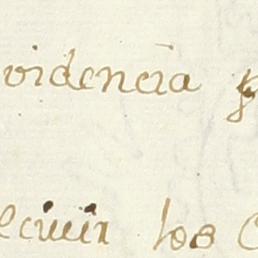 videncia p
ecivir los